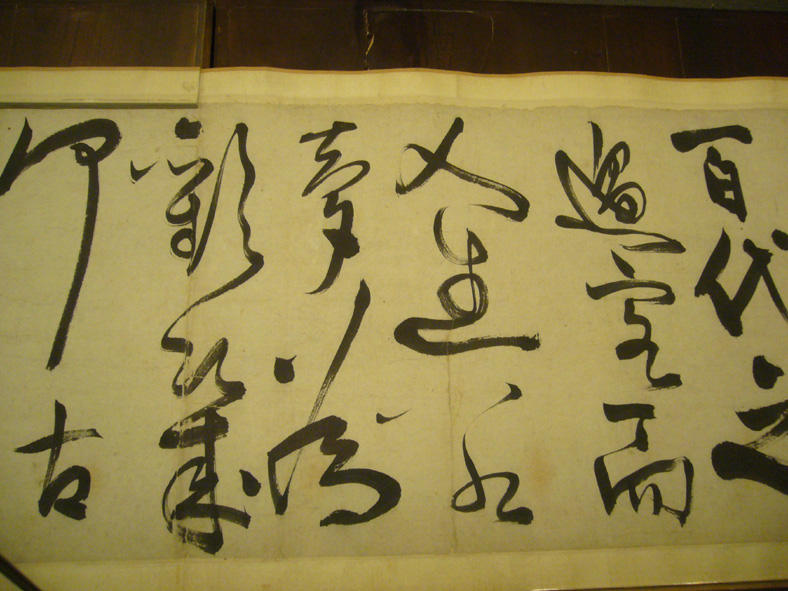 百代之
過客而
生
夢為
歡幾
何古